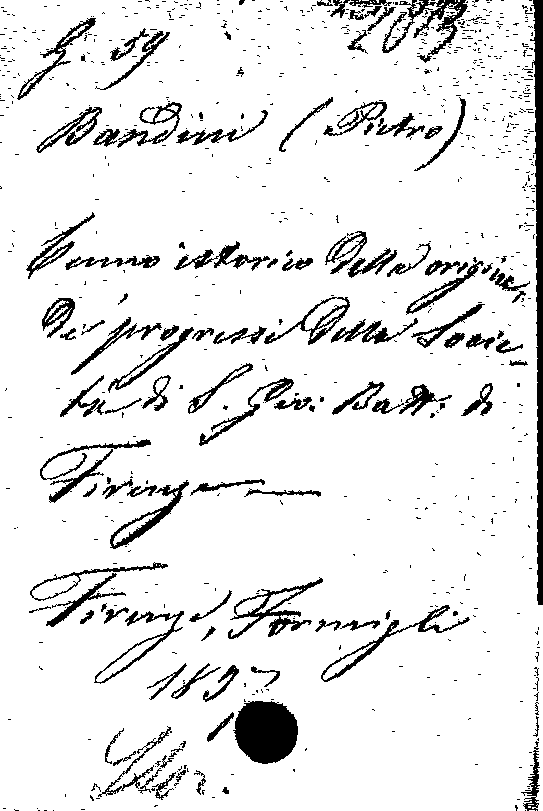 G. 59
Bandini (Pietro)
Cenno istorico della origine,
de' progressi della Socie-
tà di S. Gio: Batt: di
Firenze
Firenze, Formigli
1897
Stor.